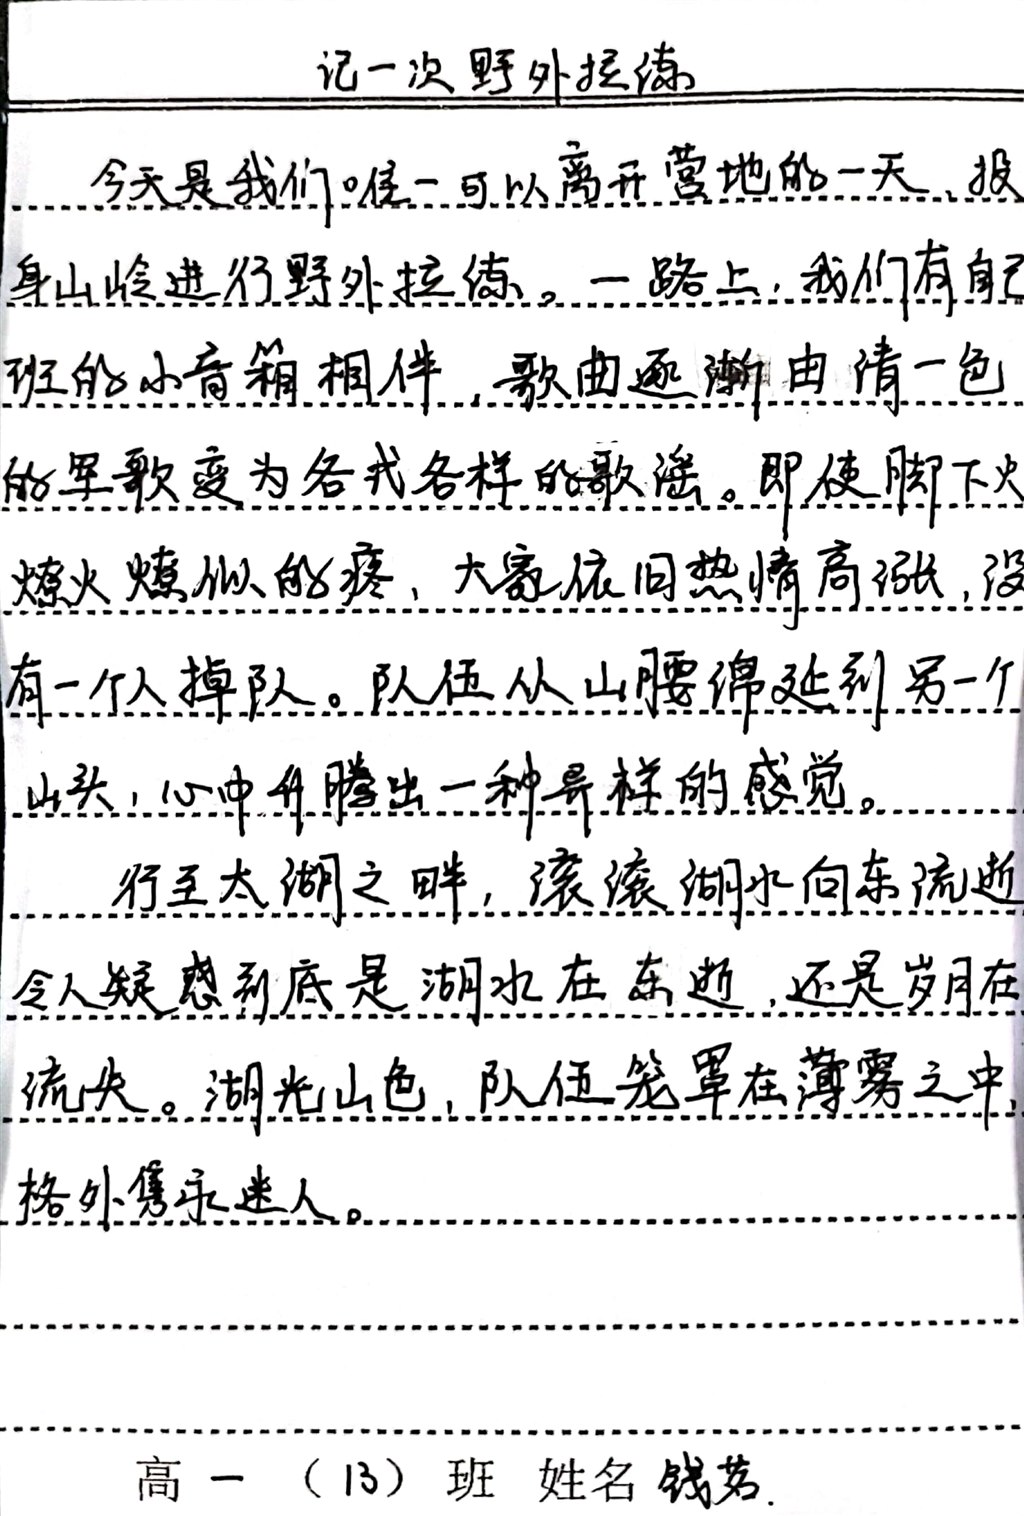 记一次野外拉练
今天是我们唯一可以离开营地的一天，投
身山岭进行野外拉练。一路上，我们有自己
班的小音箱相伴，歌曲逐渐由清一色
的军歌变为各式各样的歌谣。即使脚下火
燎火燎似的疼，大家依旧热情高涨，没
有一个人掉队。队伍从山腰绵延到另一个
山头，心中升腾出一种异样的感觉。
行至太湖之畔，滚滚湖水向东流逝
令人疑惑到底是湖水在东逝，还是岁月在
流失。湖光山色，队伍笼罩在薄雾之中，
格外隽永迷人。
高一（13）班 姓名 钱茗.